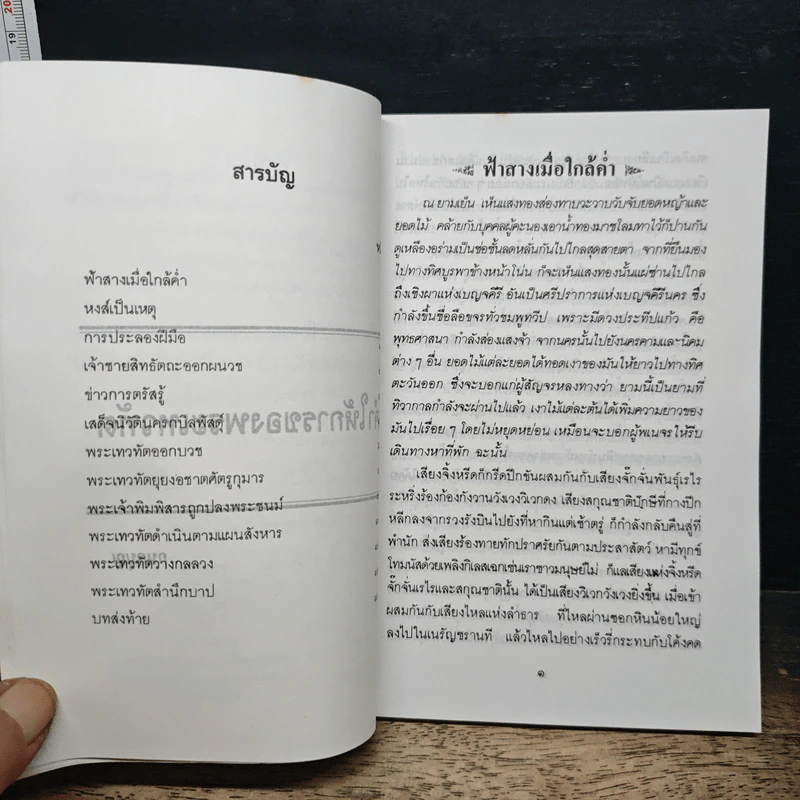 20
19
สารบัญ
ฟ้าสางเมื่อใกล้ค่ำ
หงส์เป็นเหตุ
การประลองฝีมือ
เจ้าชายสิทธัตถะออกผนวช
ข่าวการตรัสรู้
เสด็จนิวัตินครกบิลพัสดุ์
พระเทวทัตออกบวช
พระเทวทัตยุยงอชาตศัตรูกุมาร
พระเจ้าพิมพิสารถูกปลงพระชนม์
พระเทวทัตดำเนินตามแผนสังหาร
พระเทวทัตวางกลลวง
พระเทวทัตสำนึกบาป
บทส่งท้าย
ฟ้าสางเมื่อใกล้ค่ำ
ณ ยามเย็น เห็นแสงทองส่องทาบวะวาบวับจับยอดหญ้าและ
ยอดไม้ คล้ายกับบุคคลผู้คะนองเอาน้ำทองมาชโลมทาไว้ก็ปานกัน
ดูเหลืองอร่ามเป็นช่อชั้นลดหลั่นกันไปไกลสุดสายตา จากที่ยืนมอง
ไปทางทิศบูรพาข้างหน้าโน่น ก็จะเห็นแสงทองนั้นแผ่ซ่านไปไกล
ถึงเชิงผาแห่งเบญจคีรี อันเป็นศรีปราการแห่งเบญจคิรีนคร ซึ่ง
กำลังขึ้นชื่อลือขจรทั่วชมพูทวีป เพราะมีดวงประทีปแก้ว คือ
พุทธศาสนา กำลังส่องแสงจ้า จากนครนั้นไปยังนครคามและนิคม
ต่าง ๆ อื่น ยอดไม้แต่ละยอดได้ทอดเงาของมันให้ยาวไปทางทิศ
ตะวันออก ซึ่งจะบอกแก่ผู้สัญจรหลงทางว่า ยามนี้เป็นยามที่
ทิวากาลกำลังจะผ่านไปแล้ว เงาไม้แต่ละต้นได้เพิ่มความยาวของ
มันไปเรื่อย ๆ โดยไม่หยุดหย่อน เหมือนจะบอกผู้พเนจรให้รีบ
เดินทางหาที่พัก ฉะนั้น
เสียงจิ้งหรีดก็กรีดปีกขันผสมกันกับเสียงจั๊กจั่นพันธุ์เรไร
ระหริ่งร้องก้องกังวานวังเวงวิเวกดง เสียงสกุณชาติปักษีที่กางปีก
หลีกลงจากรวงรังบินไปยังที่หากินแต่เช้าตรู่ ก็กำลังกลับคืนสู่ที่
พำนัก ส่งเสียงร้องทายทักปราศรัยกันตามประสาสัตว์ หามีทุกข์
โทมนัสด้วยเพลิงกิเลสเฉกเช่นเราชาวมนุษย์ไม่ ก็แลเสียงแห่งจิ้งหรีด
จั๊กจั่นเรไรและสกุณชาตินั้น ได้เป็นเสียงวิเวกวังเวงยิ่งขึ้น เมื่อเข้า
ผสมกันกับเสียงไหลแห่งลำธาร ที่ไหลผ่านซอกหินน้อยใหญ่
ลงไปในเนรัญชรานที แล้วไหลไปอย่างเร็วรี่กระทบกับโค้งคด
๑